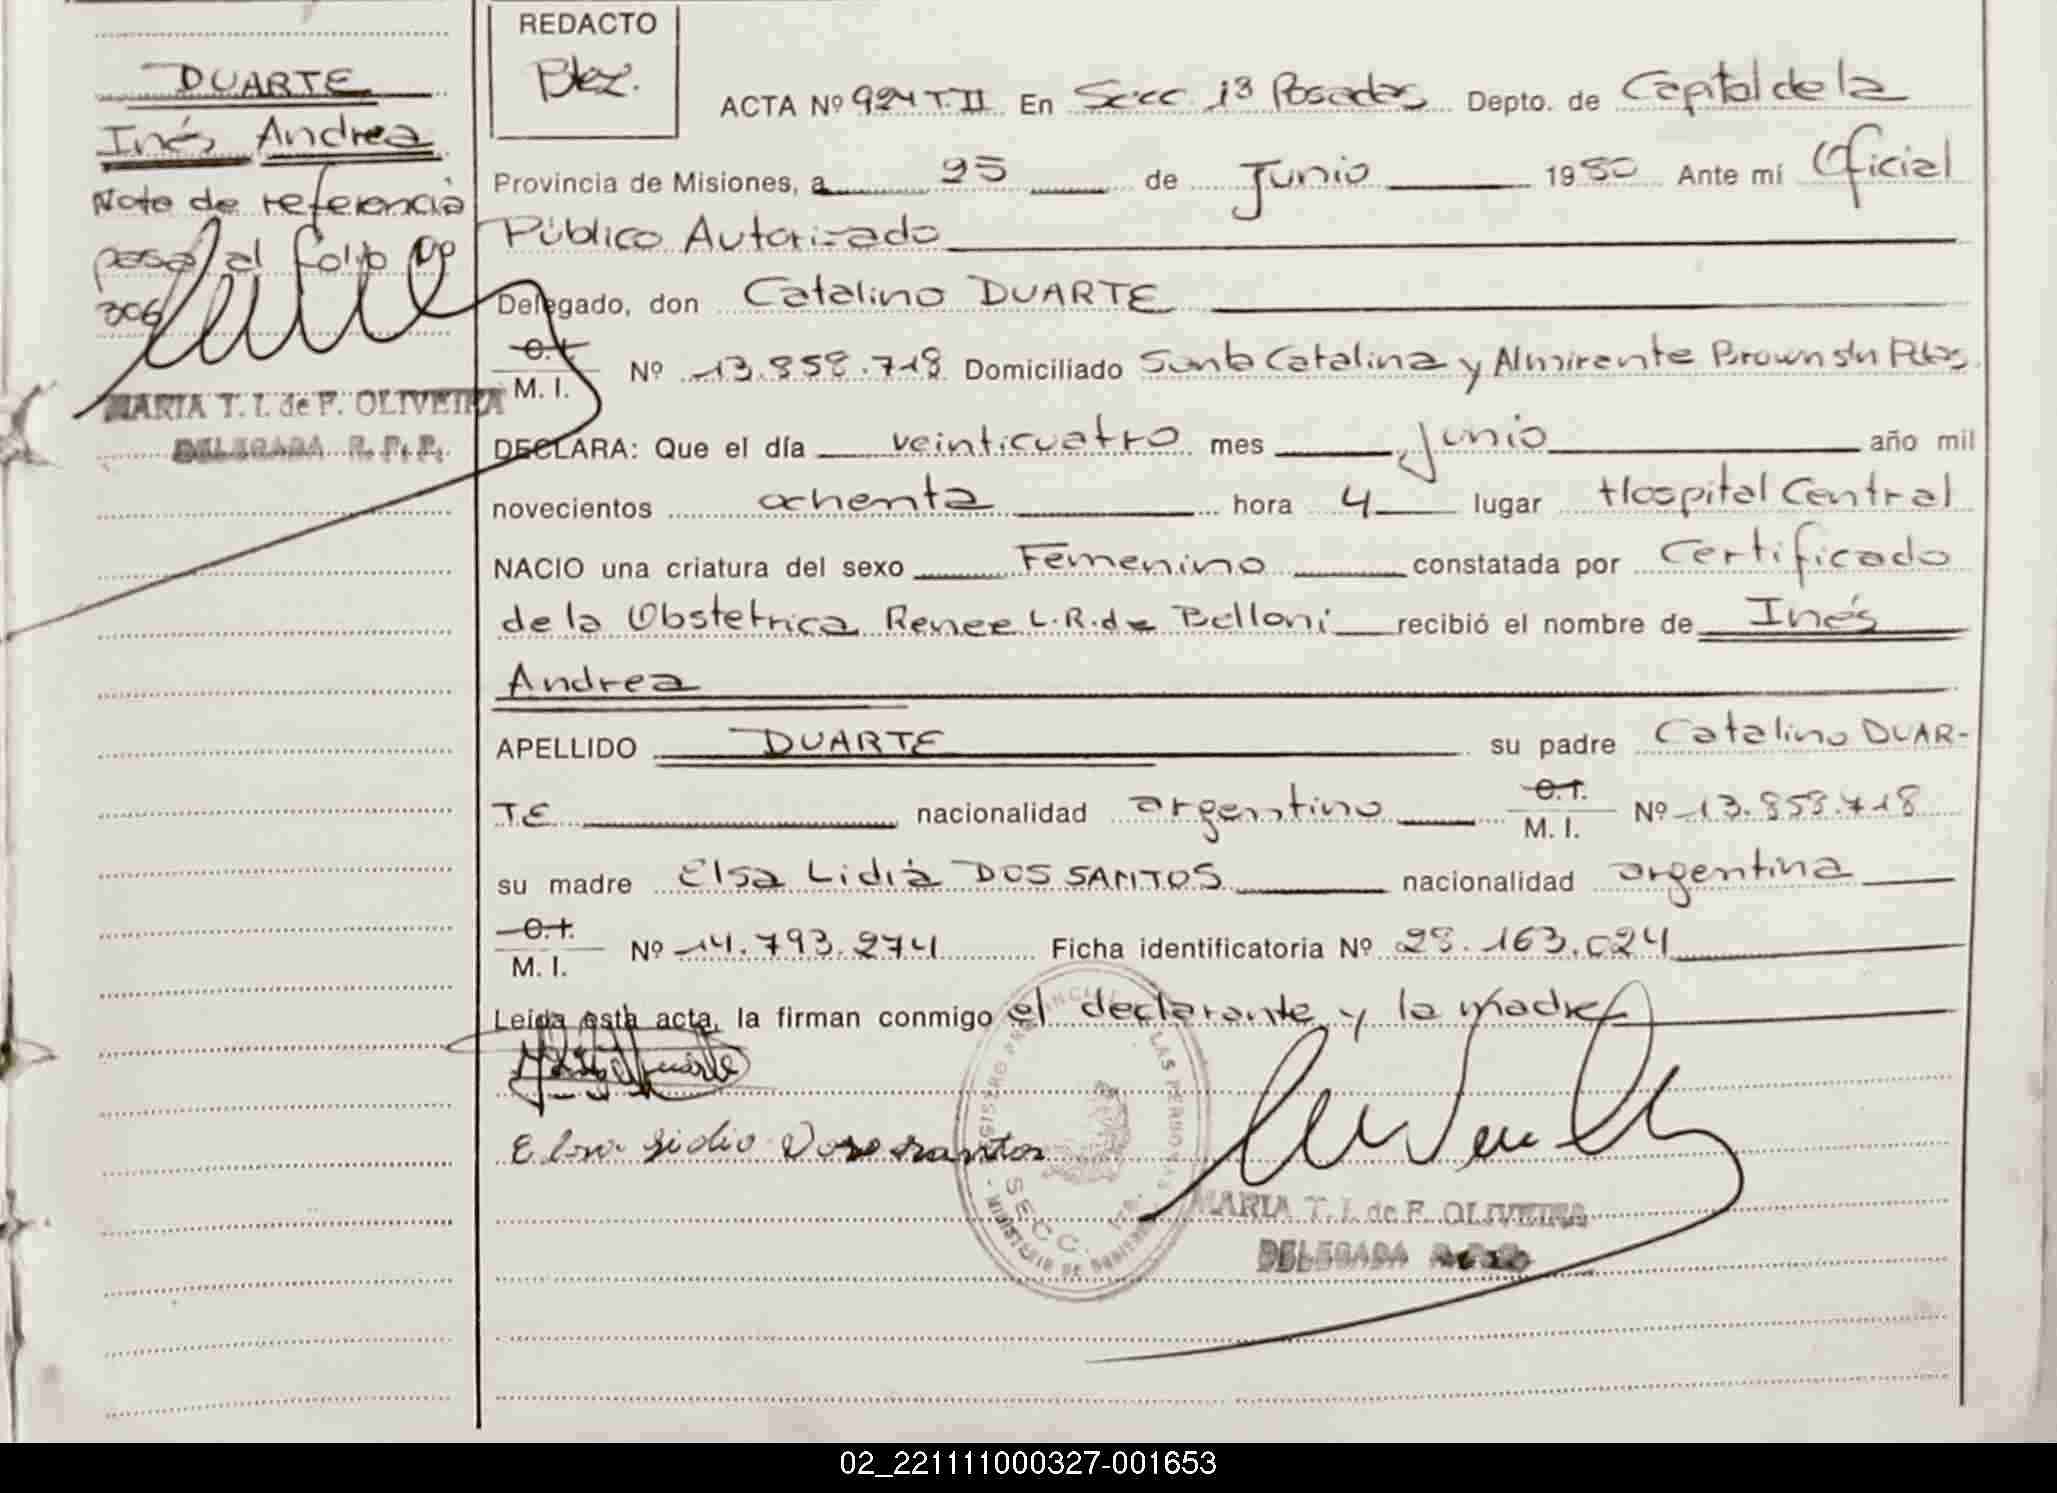 DUARTE
Inés Andrea
Nota de referencia
pasa al folio Nº
306
MARIA T. I. de F. OLIVEIRA
DELEGADA R. P. P.
REDACTO
ACTA Nº 924 T. II En Secc 1ª Posadas Depto. de Capital de la
Provincia de Misiones, a 25 de Junio 1980 Ante mí Oficial
Público Autorizado
Delegado, don Catalino DUARTE
C.I.
M. I. Nº 13.858.718 Domiciliado Santa Catalina y Almirante Brown s/n Pdas.
DECLARA: Que el día veinticuatro mes Junio año mil
novecientos ochenta hora 4 lugar Hospital Central
NACIO una criatura del sexo Femenino constatada por Certificado
de la Obstetrica Renee L.R. de Belloni recibió el nombre de Inés
Andrea
APELLIDO DUARTE su padre Catalino DUAR-
TE nacionalidad argentino C.I. M. I. Nº 13.858.718
su madre Elsa Lidia DOS SANTOS nacionalidad argentina
C.I.
M. I. Nº 14.793.274 Ficha identificatoria Nº 28.163.024
Leida esta acta, la firman conmigo el declarante y la madre
MARIA T. I. de F. OLIVEIRA
DELEGADA
02_221111000327-001653